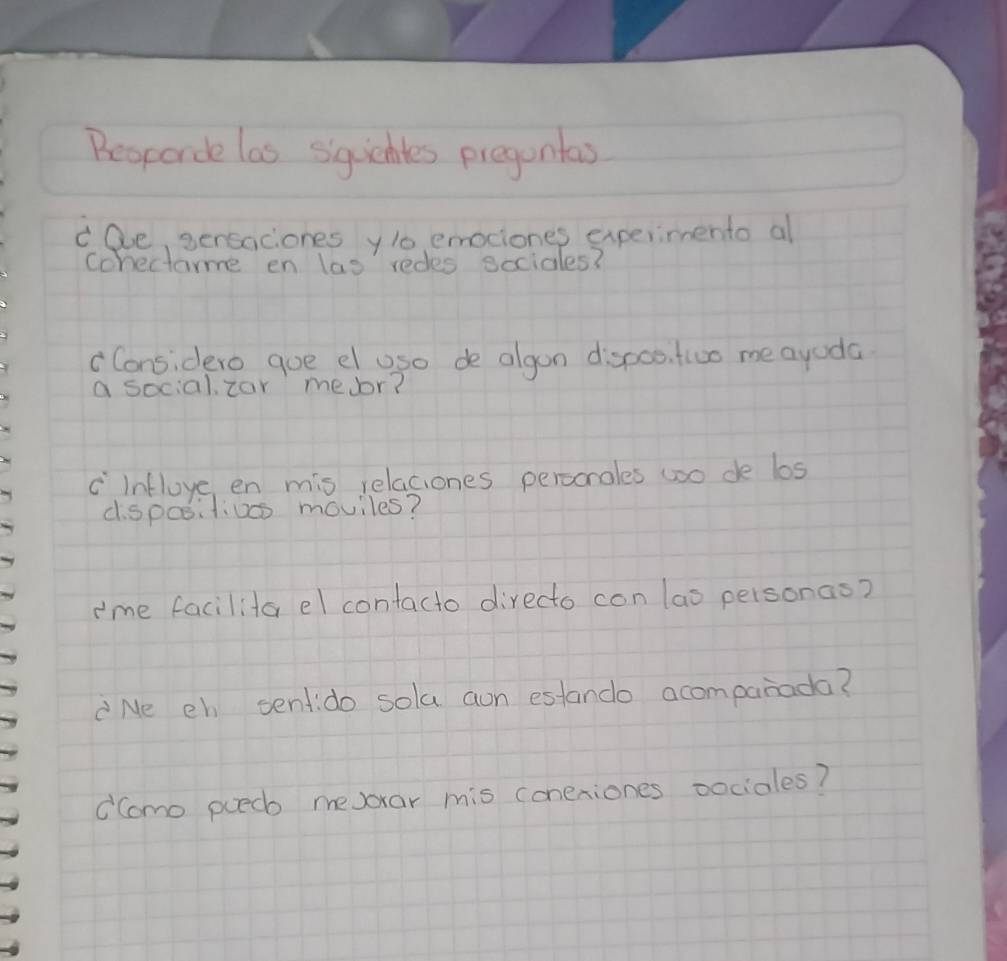 Responde las siguientes preguntas
¿Que, sensaciones y/o emociones experimento al
conectarme en las redes sociales?
¿Considero que el uso de algun dispositivo me ayuda
a socializar mejor?
¿Influye en mis relaciones personales uso de los
dispositivos moviles?
¿me facilita el contacto directo con las personas?
¿Me eh sentido sola aun estando acompañada?
¿Como puedo mejorar mis conexiones sociales?